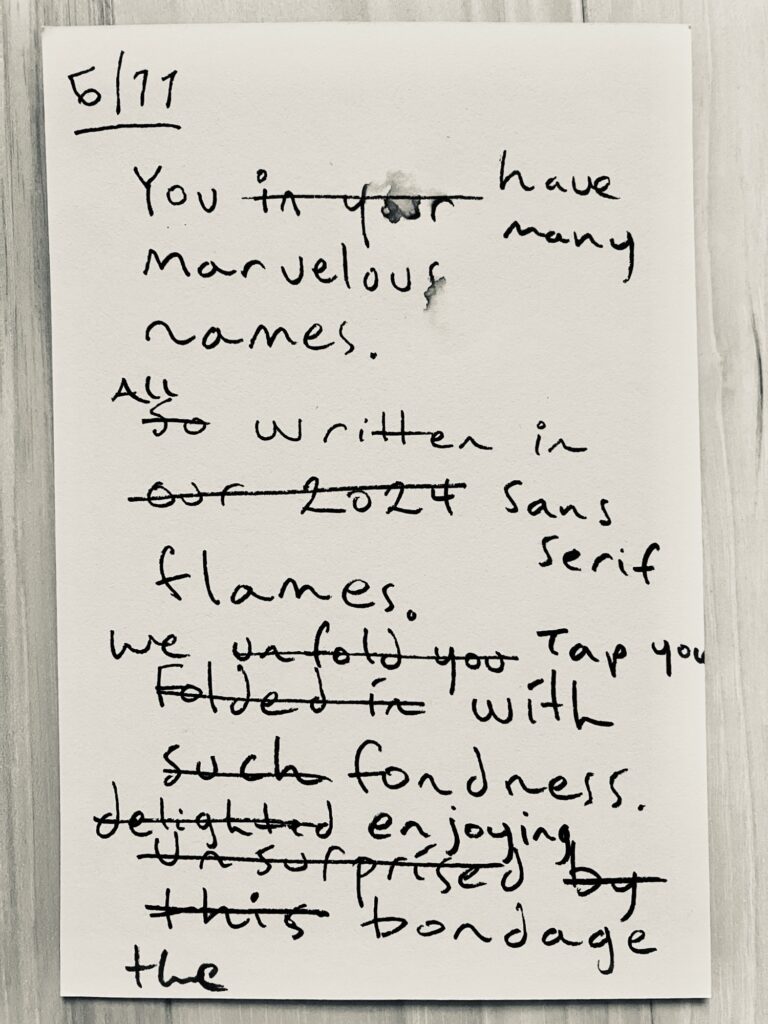 5/11
You in your have
many
marvelous
names.
All
So written in
our 2024 sans
serif
flames.
We unfold you Tap you
Folded in with
such fondness.
delighted enjoying
unsurprised by
this bondage
the